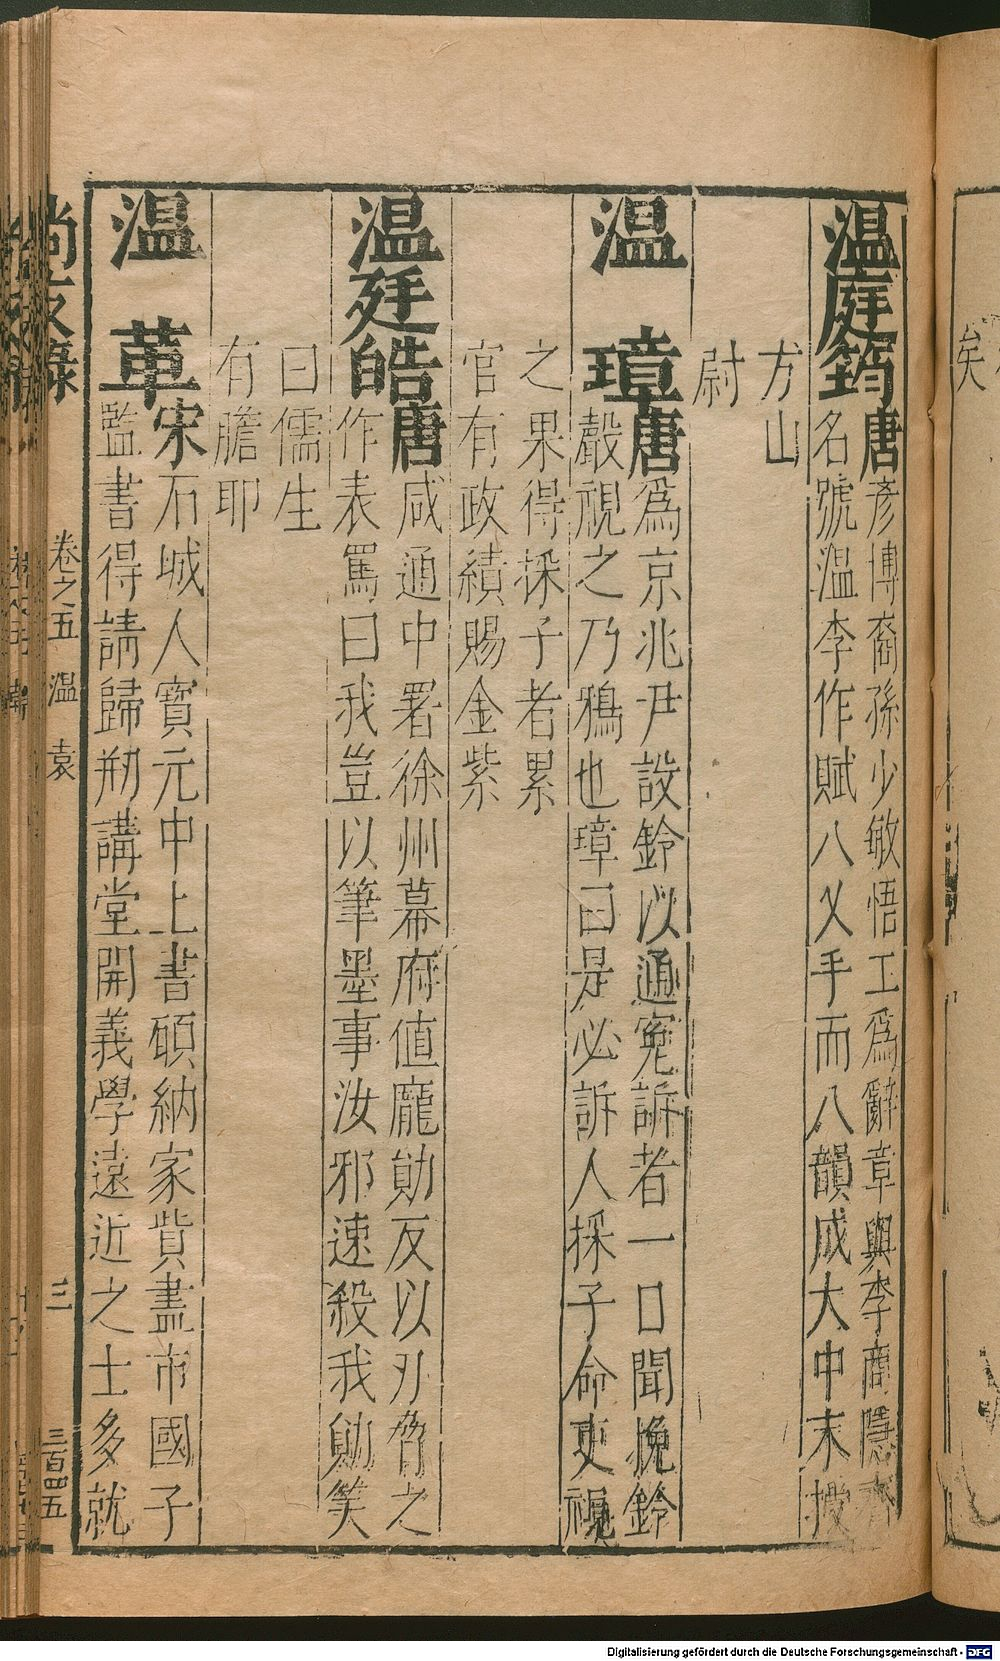 溫庭筠唐彥博裔孫少敏悟工爲辭章與李商隱齊
名號溫李作賦八乂手而八韻成大中末授
方山
尉
溫　璋唐爲京兆尹設鈴以通寃訴者一日聞挽鈴
聲視之乃鴉也璋曰是必訴人探子命吏視
之果得採子者累
官有政績賜金紫
溫廷皓唐咸通中署徐州幕府値龐勛反以刃脅之
作表罵曰我豈以筆墨事汝邪速殺我勛笑
曰儒生
有膽耶
溫　革宋石城人寳元中上書願納家貲盡市國子
監書得請歸剏講堂開義學遠近之士多就
尚友錄　卷之五　溫　袁　三　三百四五
矣
Digitalisierung gefördert durch die Deutsche Forschungsgemeinschaft - DFG